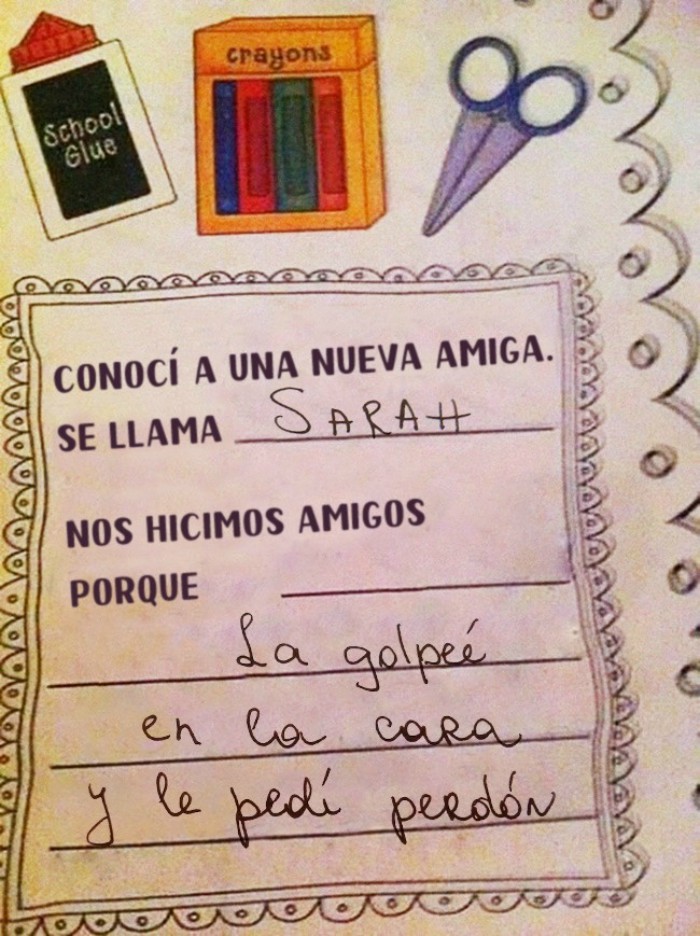 School
Glue
crayons
CONOCÍ A UNA NUEVA AMIGA.
SE LLAMA SARAH
NOS HICIMOS AMIGOS
PORQUE
La golpeé
en la cara
y le pedí perdón